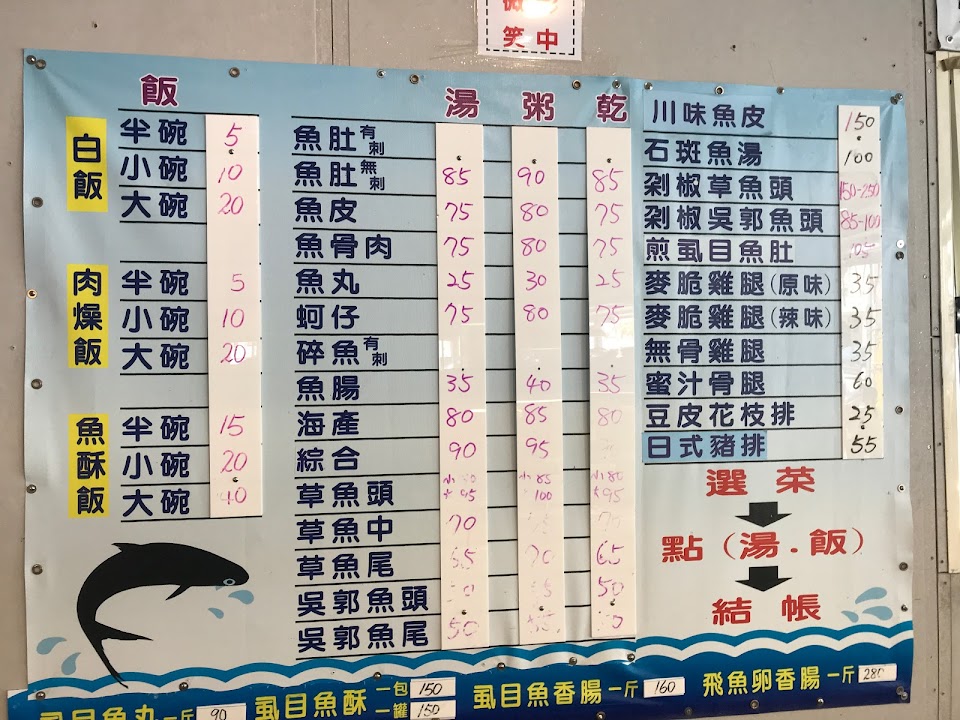 笑中
飯
白飯
半碗 5
小碗 10
大碗 20
肉燥飯
半碗 5
小碗 10
大碗 20
魚酥飯
半碗 15
小碗 20
大碗 40
湯 粥 乾
魚肚有刺
魚肚無刺 85 90 85
魚皮 75 80 75
魚骨肉 75 80 75
魚丸 25 30 25
蚵仔 75 80 75
碎魚有刺
魚腸 35 40 35
海產 80 85 80
綜合 90 95
草魚頭 大95 小85 100 小80 大95
草魚中 70
草魚尾 65 70 65
吳郭魚頭 50
吳郭魚尾 50
川味魚皮 150
石斑魚湯 100
剁椒草魚頭 150-250
剁椒吳郭魚頭 85-100
煎虱目魚肚 105
麥脆雞腿(原味) 35
麥脆雞腿(辣味) 35
無骨雞腿 35
蜜汁骨腿 60
豆皮花枝排 25
日式豬排 55
選菜
點(湯.飯)
結帳
虱目魚丸 一斤 90
虱目魚酥 一包 150
一罐 150
虱目魚香腸 一斤 160
飛魚卵香腸 一斤 280